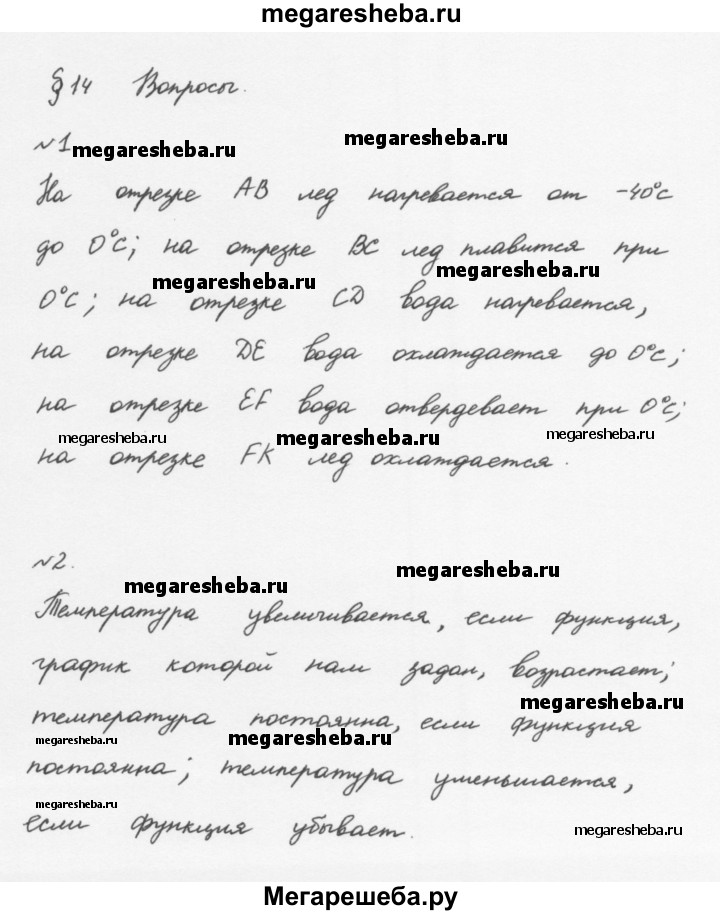 megaresheba.ru
§ 14 Вопросы.
№1
megaresheba.ru
megaresheba.ru
На отрезке AB лед нагревается от -40°C
до 0°C; на отрезке BC лед плавится при
megaresheba.ru
megaresheba.ru
0°C; на отрезке CD вода нагревается,
на отрезке DE вода охлаждается до 0°C;
на отрезке EF вода отвердевает при 0°C;
megaresheba.ru
megaresheba.ru
megaresheba.ru
на отрезке FK лед охлаждается.
№2.
megaresheba.ru
megaresheba.ru
Температура увеличивается, если функция,
график которой нам задан, возрастает;
megaresheba.ru
температура постоянна, если функция
megaresheba.ru
megaresheba.ru
постоянна; температура уменьшается,
megaresheba.ru
если функция убывает.
megaresheba.ru
Мегарешеба.ру